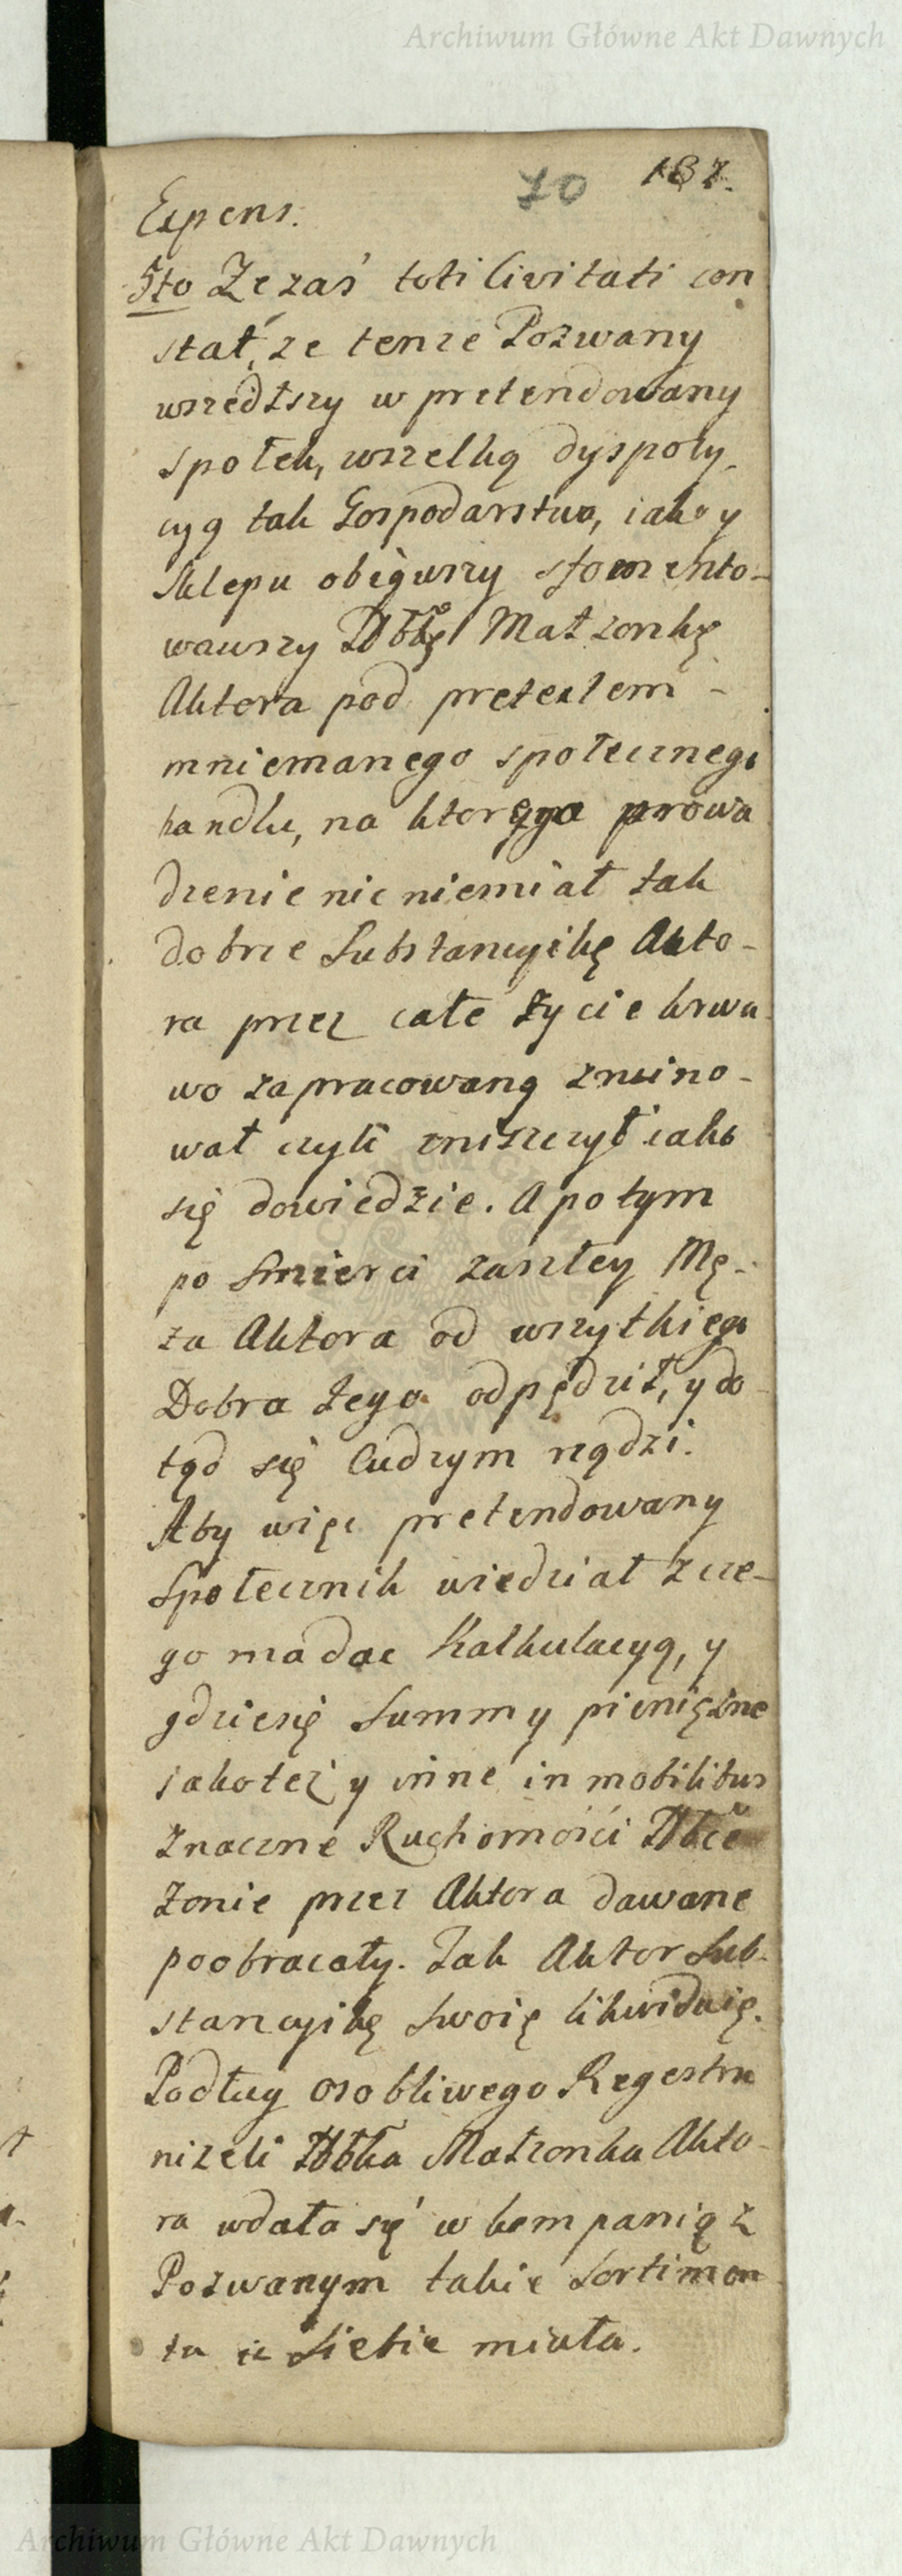 Archiwum Główne Akt Dawnych
70 187.
Expens.
5to Ze zaś toti Civitati con
stat, ze tenze Pozwany
wszedłszy w pretendowany
społek, wszelką dyspozy-
cyą tak Gospodarstwa, iako y
Sklepu obiąwszy sfomento-
wawszy Małzonkę
Aktora pod pretextem -
mniemanego społecznego
handlu, na ktorego prowa
dzenie nic niemiał tak
dobrze Substancyikę Akto-
ra przez całe życie krwa
wo zapracowaną zruino-
wał czyli zniszczył iako
się dowiedzie. A potym
po Smierci zaszłey Mę-
ża Aktora od wszytkiego
Dobra Jego odpędził, y do
tąd się Cudzym rządzi.
Aby więc pretendowany
Społecznik wiedział z cze-
go ma dac Kalkulacyą, y
gdzie się Summy pieniężne
jakotez y inne in mobilibus
znaczne Ruchomości
Zonie przez Aktora dawane
poobracały. Tak Aktor Sub-
stancyikę Swoię likwiduię.
Podług osobliwego Regestru
nizeli Małzonka Akto-
ra wdała się w kompanię z
Pozwanym takie Sortimen
ta u Siebie miała.
Archiwum Główne Akt Dawnych